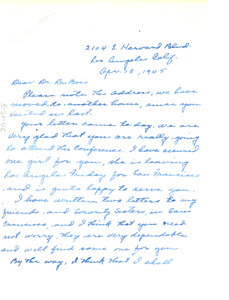 2104 S. Harvard Blvd.
Los Angeles Calif.
Apr. 18, 1945
Dear Dr. Du Bois
Please note the address, we have
moved to another home, since you
visited us last.
Your letter came to-day. We are
very glad that you are really going
to attend the Conference. I have secured
one girl for you, she is leaving
Los Angeles Friday for San Francisco
and is quite happy to serve you.
I have written two letters to my
friends and Sorority Sisters in San
Francisco, and I think that you need
not worry, they are very dependable
and will find some one for you
By the way, I think that I shall